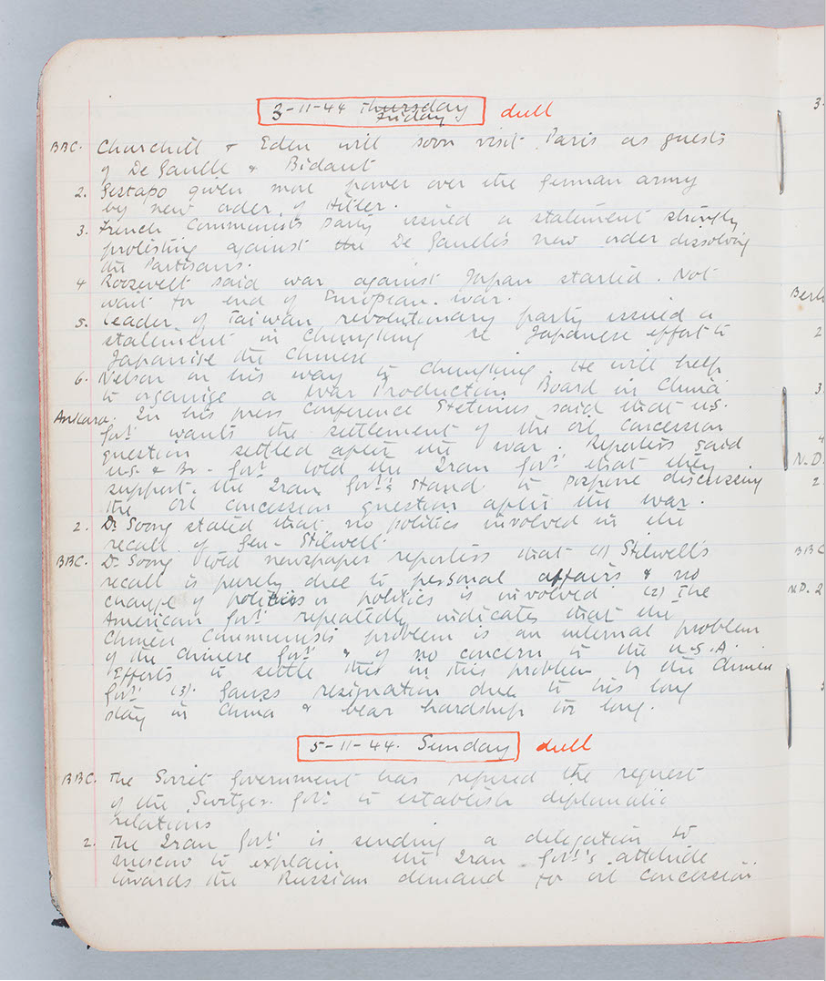 3-11-44 Thursday Friday dull
BBC. Churchill & Eden will soon visit Paris as guests
of De Gaulle & Bidault
2. Gestapo given more power over the German army
by new order of Hitler.
3. French Communists Party issued a statement strongly
protesting against the De Gaulle's new order dissolving
the Partisans.
4 Roosevelt said war against Japan started. Not
wait for end of European war.
5. Leader of Taiwan revolutionary party issued a
statement in Chungking re Japanese effort to
Japanise the Chinese
6. Nelson on his way to Chungking. He will help
to organise a War Production Board in China
Ankara. In his press conference Stetinus said that U.S.
Gov't wants the settlement of the oil concession
question settled after the war. Reporters said
U.S. & Br. Gov't told the Iran Gov't that they
support the Iran Gov't's stand to pospone discussing
the oil concession question after the war.
2. Dr Soong stated that no politics involved in the
recall of Gen- Stilwell
BBC. Dr. Soong told newspaper reporters that (1) Stilwell's
recall is purely due to personal affairs & no
change of politics or politics is involved (2) The
American Gov't repeatedly indicates that the
Chinese Communists problem is an internal problem
of the Chinese Gov't & of no concern to the U.S.A.
Efforts to settle this in this problem by the Chinese
Gov't (3). Gauss resignation due to his long
stay in China & bear hardship too long.
5-11-44. Sunday dull
BBC. The Soviet Government has refused the request
of the Switzer. Gov't to establish diplomatic
relations
2. The Iran Gov't is sending a delegation to
Moscow to explain the Iran Gov't's attitude
towards the Russian demand for oil concession
3.
Berl
2
3.
4
N.D.
2.
BBC
N.D. 2